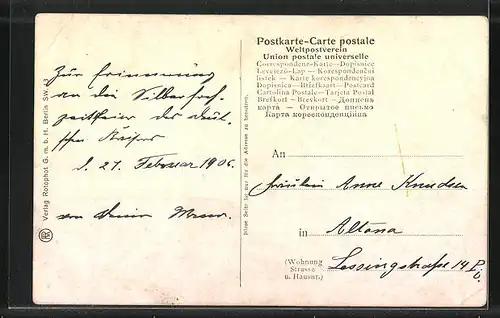 Postkarte–Carte postale
Weltpostverein
Union postale universelle
Correspondenz-Karte—Dopisnice
Levelező-Lap — Korespondenční
lístek — Karte korespondencyjna
Dopisnica—Briefkaart—Postcard
Cartolina Postale—Tarjeta Postal
Brefkort — Brevkort —
карта — Открытое письмо
Карта кореспонденційна
Zur Erinnerung
an die Silberhoch-
zeitfeier des deut-
schen Kaisers
d. 27. Februar 1906.
von deiner
An
Fräulein Anne Knudsen
in
Altona
(Wohnung
Strasse
u. Hausnr.)
Lessingstraße 14
Verlag Rotophot G. m. b. H. Berlin SW.
Diese Seite ist nur für die Adresse zu benutzen.